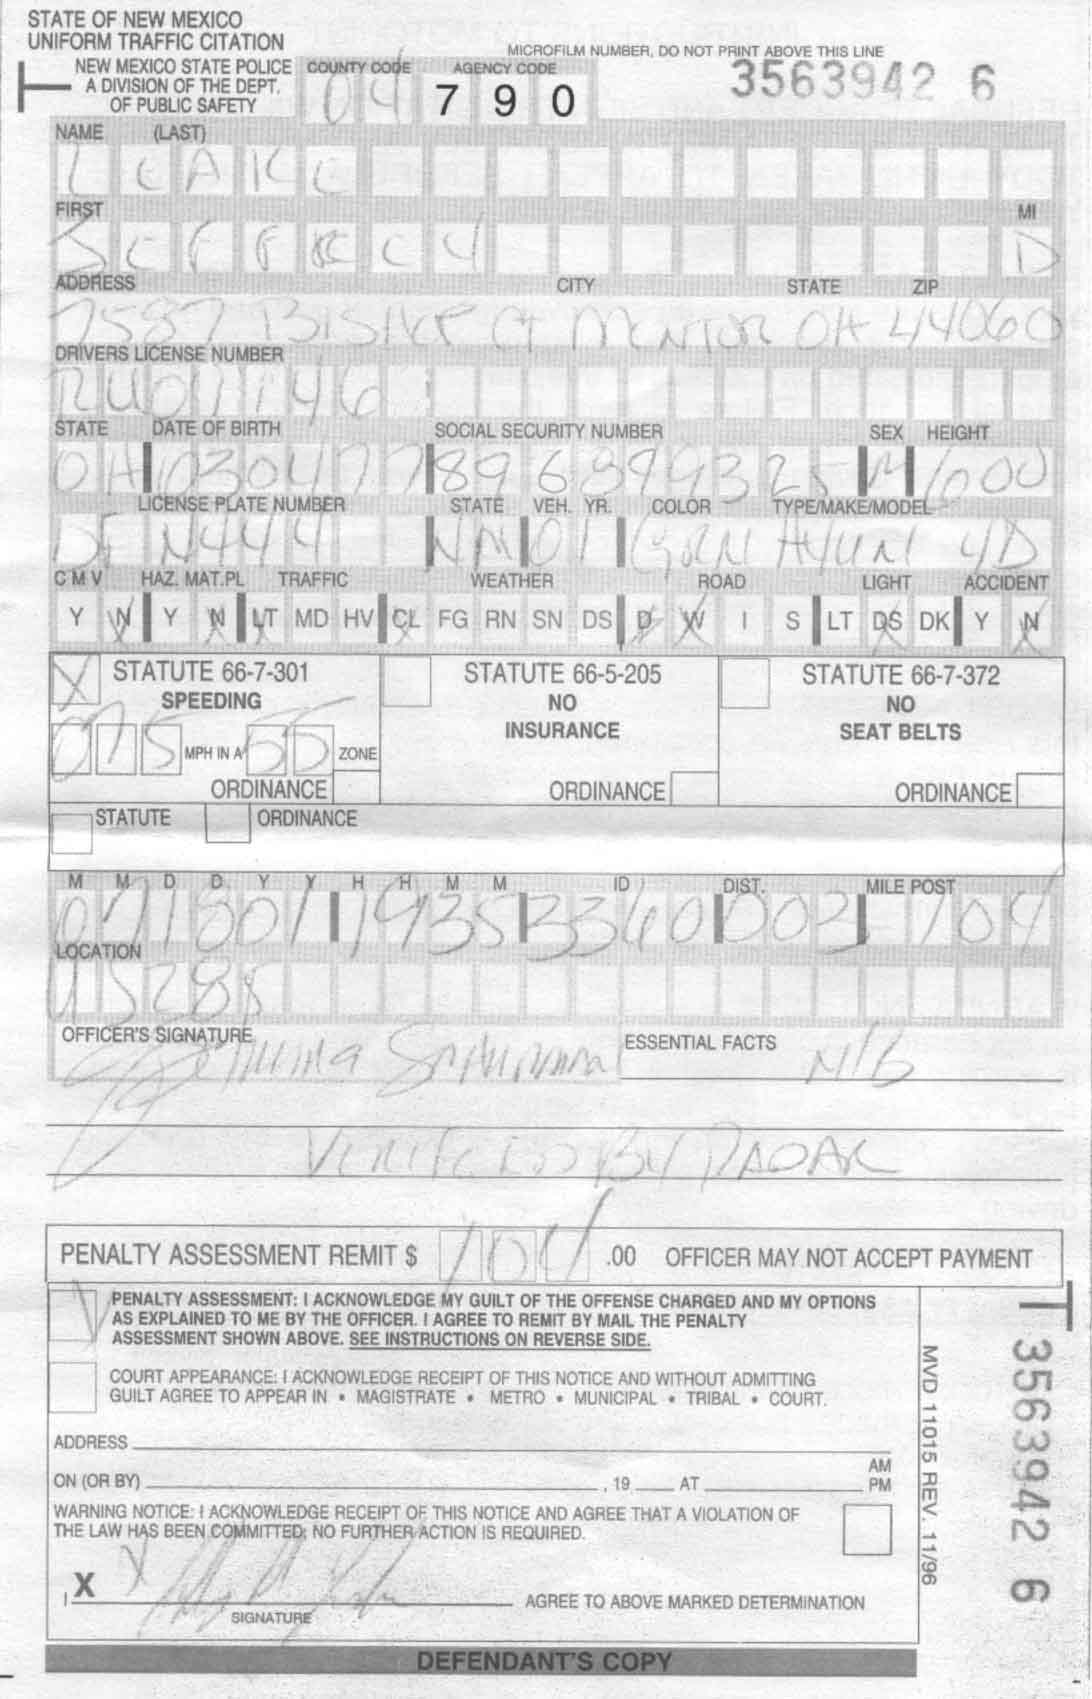 STATE OF NEW MEXICO
UNIFORM TRAFFIC CITATION
MICROFILM NUMBER, DO NOT PRINT ABOVE THIS LINE
NEW MEXICO STATE POLICE
A DIVISION OF THE DEPT.
OF PUBLIC SAFETY
COUNTY CODE AGENCY CODE
04 790
3563942 6
NAME (LAST)
LEAKE
FIRST MI
JEFFREY D
ADDRESS CITY STATE ZIP
7587 CT MENTOR OH 44060
DRIVERS LICENSE NUMBER
STATE DATE OF BIRTH SOCIAL SECURITY NUMBER SEX HEIGHT
OH M 600
LICENSE PLATE NUMBER STATE VEH. YR. COLOR TYPE/MAKE/MODEL
NM 01 GRN HYUN 4D
C M V HAZ. MAT.PL TRAFFIC WEATHER ROAD LIGHT ACCIDENT
Y N Y N LT MD HV CL FG RN SN DS D W I S LT DS DK Y N
X STATUTE 66-7-301
SPEEDING
075 MPH IN A 55 ZONE
ORDINANCE
STATUTE 66-5-205
NO
INSURANCE
ORDINANCE
STATUTE 66-7-372
NO
SEAT BELTS
ORDINANCE
STATUTE ORDINANCE
M M D D Y Y H H M M ID DIST. MILE POST
071801 1935 3360 003 104
LOCATION
US285
OFFICER'S SIGNATURE
ESSENTIAL FACTS N/B
VERIFIED BY RADAR
PENALTY ASSESSMENT REMIT $ 104 .00 OFFICER MAY NOT ACCEPT PAYMENT
PENALTY ASSESSMENT: I ACKNOWLEDGE MY GUILT OF THE OFFENSE CHARGED AND MY OPTIONS
AS EXPLAINED TO ME BY THE OFFICER. I AGREE TO REMIT BY MAIL THE PENALTY
ASSESSMENT SHOWN ABOVE. SEE INSTRUCTIONS ON REVERSE SIDE.
COURT APPEARANCE: I ACKNOWLEDGE RECEIPT OF THIS NOTICE AND WITHOUT ADMITTING
GUILT AGREE TO APPEAR IN • MAGISTRATE • METRO • MUNICIPAL • TRIBAL • COURT.
ADDRESS
ON (OR BY) , 19 AT AM
PM
WARNING NOTICE: I ACKNOWLEDGE RECEIPT OF THIS NOTICE AND AGREE THAT A VIOLATION OF
THE LAW HAS BEEN COMMITTED; NO FURTHER ACTION IS REQUIRED.
I X X AGREE TO ABOVE MARKED DETERMINATION
SIGNATURE
MVD 11015 REV. 11/96
3563942 6
DEFENDANT'S COPY